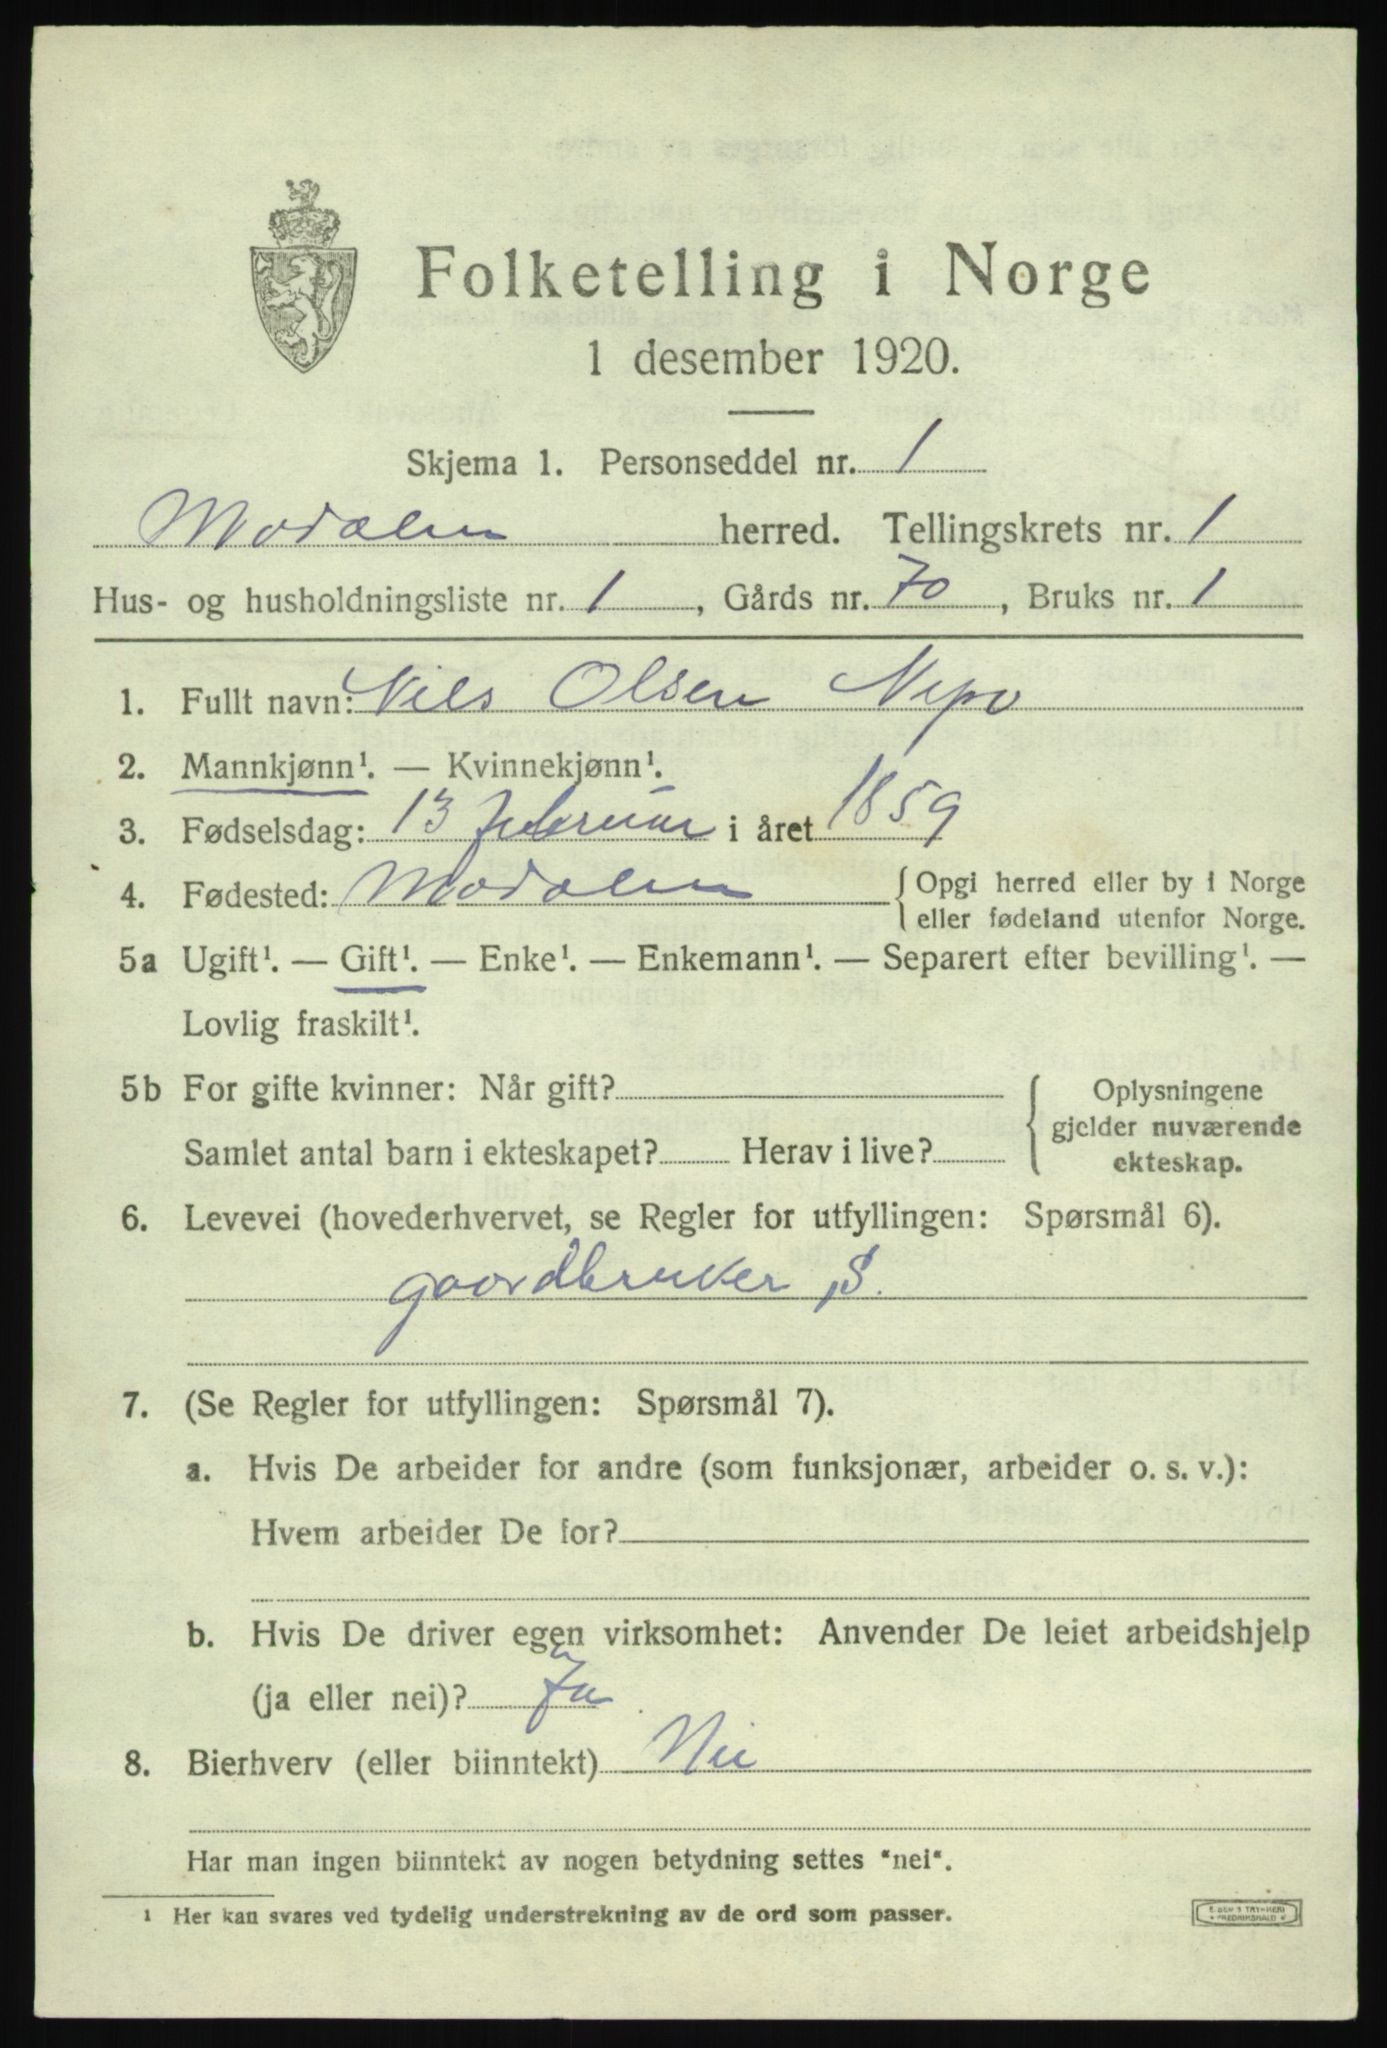 Folketelling i Norge
1 desember 1920.
Skjema 1. Personseddel nr. 1
Modalen herred. Tellingskrets nr. 1
Hus- og husholdningsliste nr. 1, Gårds nr. 70, Bruks nr. 1
1. Fullt navn: Nils Olsen Nepo
2. Mannkjønn¹. — Kvinnekjønn¹.
3. Fødselsdag: 13 februar i året 1859
4. Fødested: Modalen { Opgi herred eller by i Norge
eller fødeland utenfor Norge.
5a Ugift¹. — Gift¹. — Enke¹. — Enkemann¹. — Separert efter bevilling¹. —
Lovlig fraskilt¹.
5b For gifte kvinner: Når gift? { Oplysningene
gjelder nuværende
Samlet antal barn i ekteskapet? Herav i live? ekteskap.
6. Levevei (hovederhvervet, se Regler for utfyllingen: Spørsmål 6).
gaardbruker, S.
7. (Se Regler for utfyllingen: Spørsmål 7).
a. Hvis De arbeider for andre (som funksjonær, arbeider o. s. v.):
Hvem arbeider De for?
b. Hvis De driver egen virksomhet: Anvender De leiet arbeidshjelp
(ja eller nei)? Ja
8. Bierhverv (eller biinntekt) Nei
Har man ingen biinntekt av nogen betydning settes "nei".
¹ Her kan svares ved tydelig understrekning av de ord som passer.